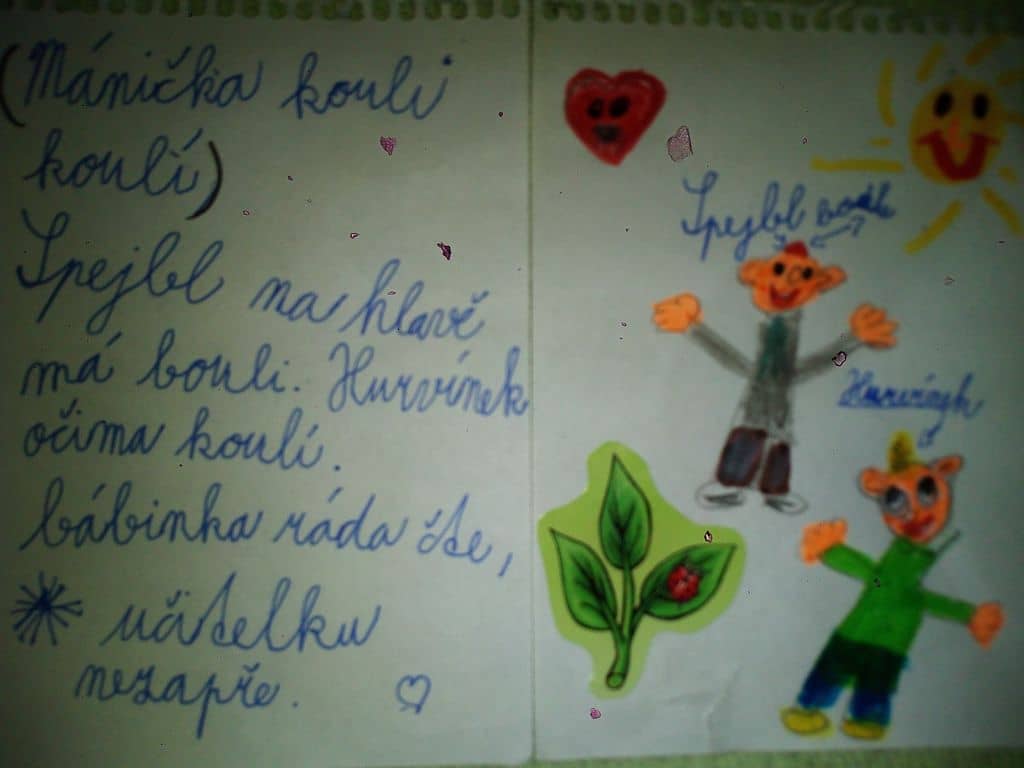 (Mánička kouli
koulí)
Spejbl na hlavě
má bouli. Hurvínek
očima koulí.
bábinka ráda čte,
učitelku
nezapře.
Spejbl